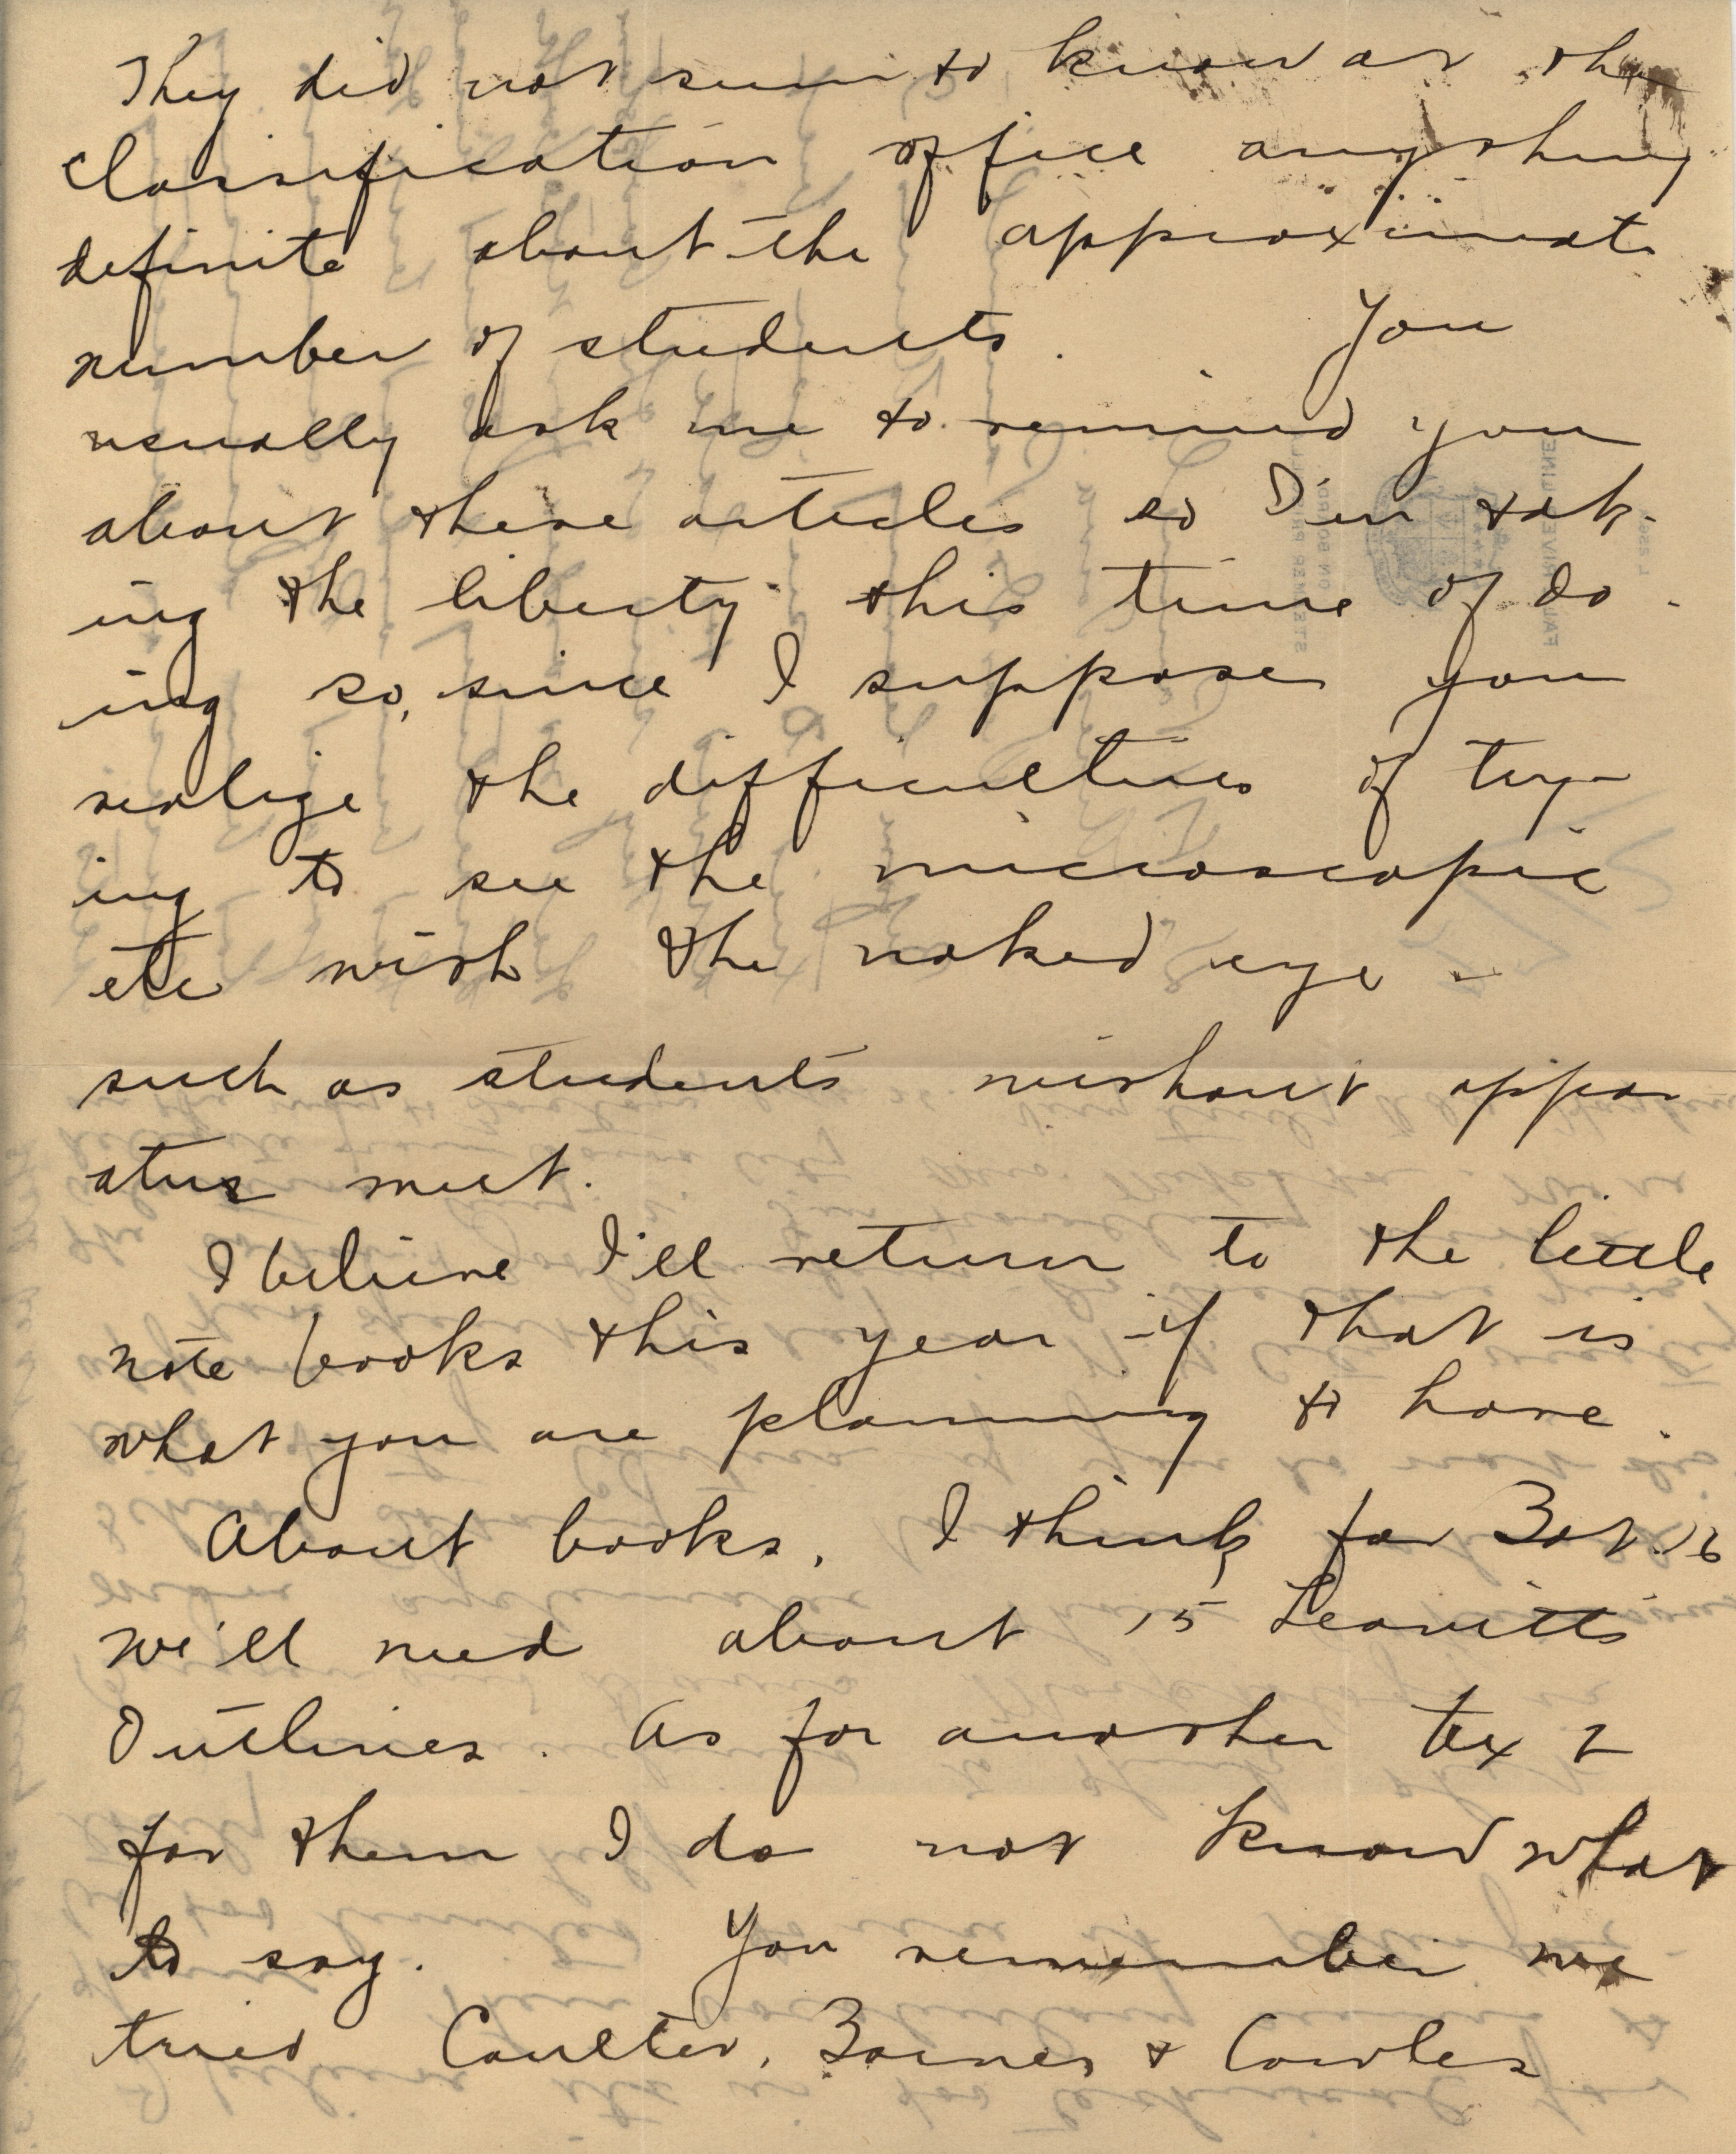 They did not seem to know at the
classification office anything
definite about the approximate
number of students. You
usually ask me to remind you
about these articles so I'm tak-
ing the liberty this time of do-
ing so, since I suppose you
realize the difficulties of try-
ing to see the microscopic
etc with the naked eye -
such as students without appar
atus meet.
I believe I'll return to the little
note books this year if that is
what you are planning to have.
About books. I think for Bot. 16
we'll need about 15 Leavitts
Outlines. As for another text
for them I do not know what
to say. You remember we
tried Coulter, Barnes & Cowles